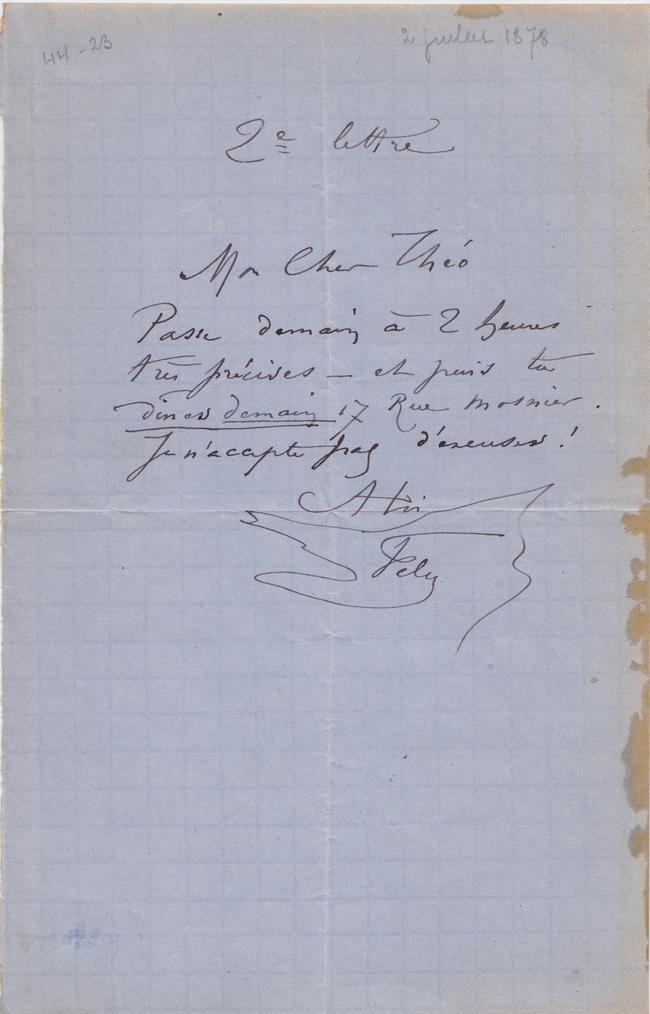 44-23
2 juillet 1878
2e lettre
Mon Cher Théo
Passe demain à 2 heures
très précises – et puis tu
dines demain 17 Rue Mosnier.
Je n'accepte pas d'excuses!
A toi
Fely